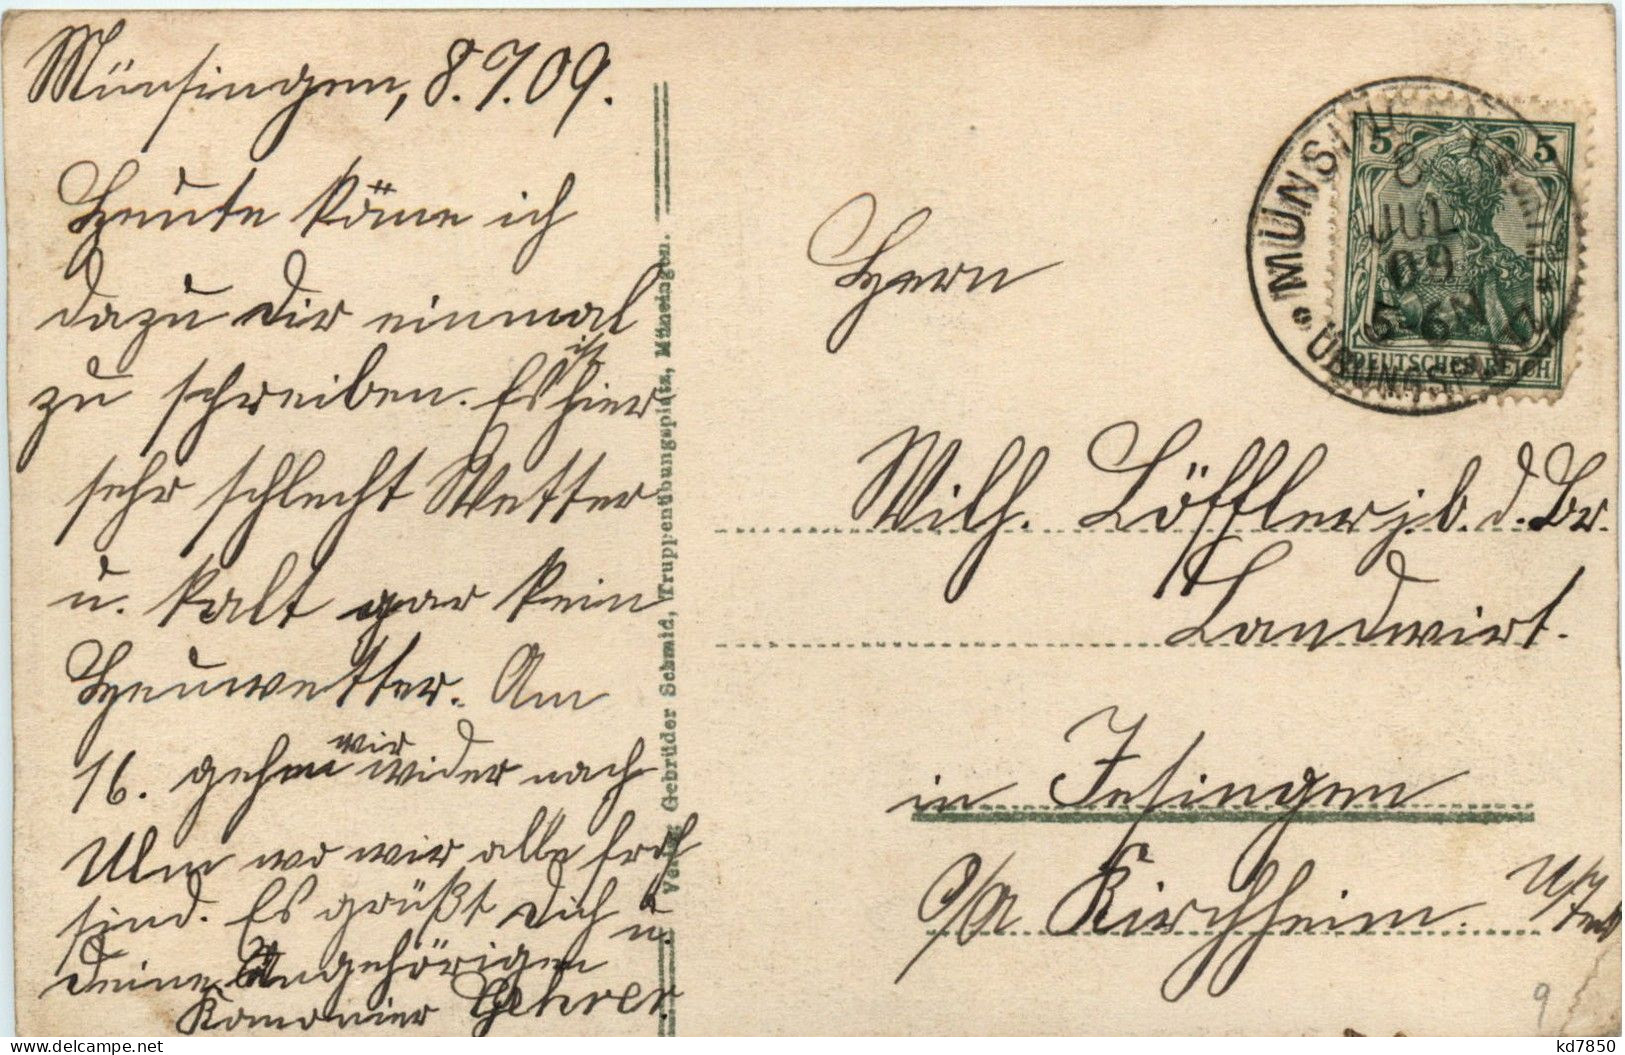 Münsingen, 8.7.09.
Heute käme ich
dazu Dir einmal
zu schreiben. Es ist hier
sehr schlecht Wetter
u. kalt gar kein
Heuwetter. Am
16. gehen wir wider nach
Ulm wo wir alle froh
sind. Es grüßt Dich u.
deine Angehörigen
Kanonier Gehrer.
Verlag Gebrüder Schmid, Truppenübungsplatz, Münsingen.
MÜNSINGEN
8
JUL
09
5-6N
ÜBUNGSPLATZ
5 5
DEUTSCHES REICH
Herrn
Wilh. Löffler j. b. d. Br.
Landwirt.
in Jesingen
O/A Kirchheim. U/Teck
9
kd7850